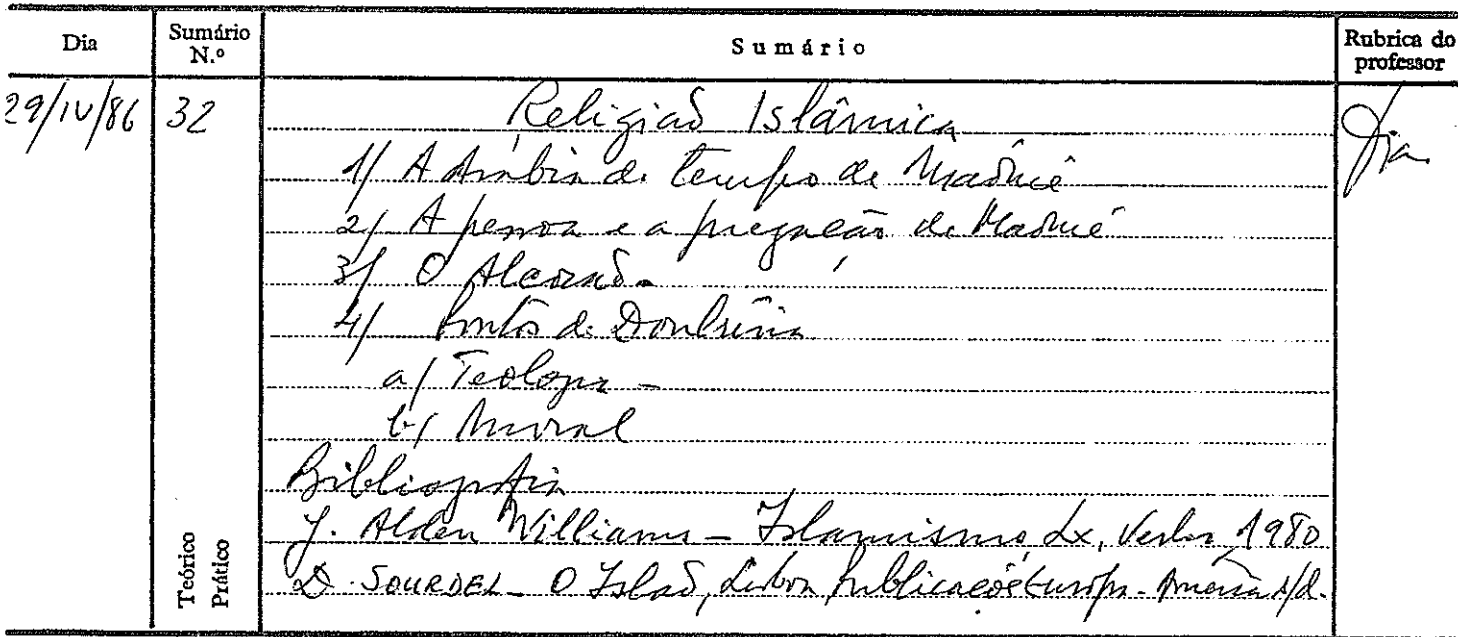 Dia Sumário N.º Sumário Rubrica do professor
29/IV/86 32 Religião Islâmica
1/ A Arábia do tempo de Maomé
2/ A pessoa e a pregação de Maomé
3/ O Alcorão -
4/ Pontos de Doutrina
a/ Teologia -
b/ Moral
Bibliografia
J. Alden Williams - Islamismo, Lx, Verbo 1980
D. SOURDEL - O Islão, Lisboa Publicações Europa-América s/d.
Teórico
Prático